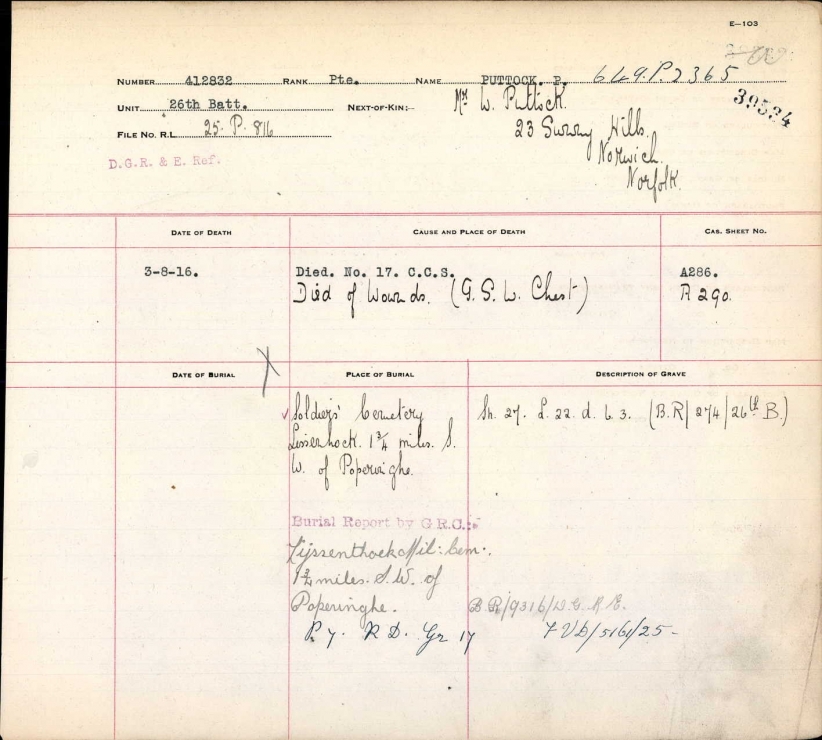 E—103
NUMBER 412832 RANK Pte. NAME PUTTOCK. P. 649.P.2365
39534
UNIT 26th Batt. NEXT-OF-KIN:— Mr W. Puttock.
FILE NO. R.L. 25. P. 816
23 Surrey Hills.
Norwich.
Norfolk.
D.G.R. & E. Ref.
DATE OF DEATH CAUSE AND PLACE OF DEATH CAS. SHEET NO.
3-8-16. Died. No. 17. C.C.S. A286.
Died of Wounds. (G. S. W. Chest) A 290.
DATE OF BURIAL PLACE OF BURIAL DESCRIPTION OF GRAVE
Soldiers' Cemetery Sh. 27. L. 22. d. 6. 3. (B.R/274/26th B.)
Lissenhock. 1¾ miles. S.
W. of Poperinghe.
Burial Report by G.R.C.:-
Lijssenthoek Mil: Cem:.
miles. S.W. of
Poperinghe. B.R/9316/D.G.R.E.
R D. Gr 17